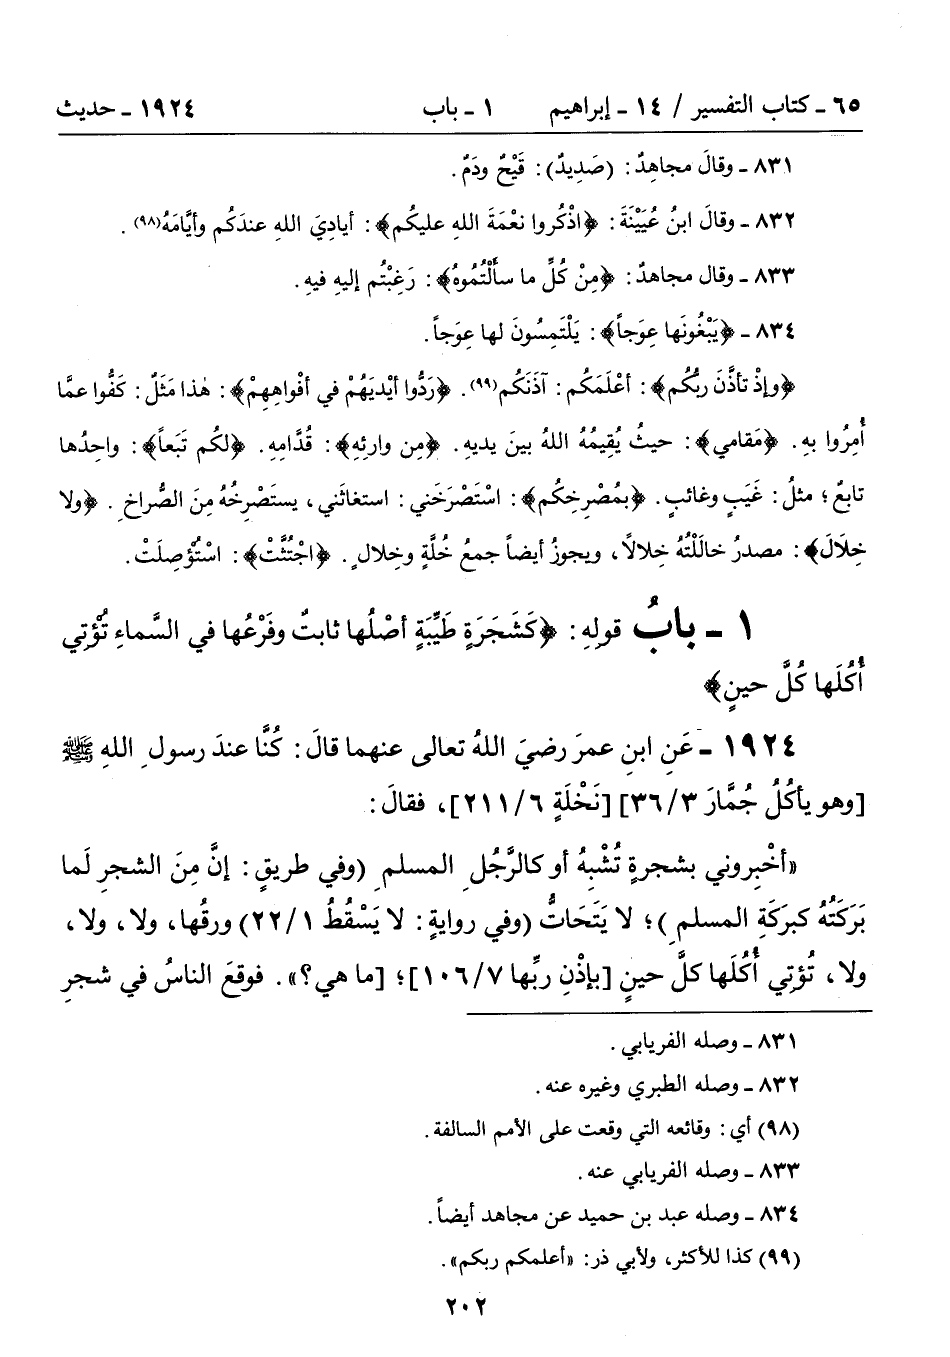 ٦٥ ـ كتاب التفسير / ١٤ ـ إبراهيم ١ ـ باب ١٩٢٤ ـ حديث
٨٣١ ـ وقالَ مجاهِدٌ: (صَدِيدٌ): قَيْحٌ ودَمٌ.
٨٣٢ ـ وقالَ ابنُ عُيَيْنَةَ: ﴿اذْكُروا نعْمَةَ اللهِ عليكُم﴾: أياديَ اللهِ عندَكُم وأيَّامَهُ(٩٨).
٨٣٣ ـ وقال مجاهدٌ: ﴿مِنْ كُلِّ ما سألْتُموهُ﴾: رَغِبْتُم إليهِ فيهِ.
٨٣٤ ـ ﴿يَبْغُونَها عِوَجاً﴾: يَلْتَمِسُونَ لها عِوَجاً.
﴿وإذْ تأذَّنَ ربُّكُم﴾: أعْلَمَكُم: آذَنَكُم(٩٩). ﴿رَدُّوا أيْديَهُمْ في أفْواهِهِمْ﴾: هٰذا مَثَلٌ: كَفُّوا عمَّا
أُمِرُوا بهِ. ﴿مَقامي﴾: حيثُ يُقِيمُهُ اللهُ بينَ يديهِ. ﴿مِن وارئِهِ﴾: قُدَّامِهِ. ﴿لكُم تَبَعاً﴾: واحِدُها
تابعٌ؛ مثلُ: غَيَبٍ وغائبٍ. ﴿بمُصْرِخِكُم﴾: اسْتَصْرَخَني: استغاثَني، يستَصْرِخُهُ مِنَ الصُّراخِ. ﴿ولا
خِلَالَ﴾: مصدرُ خالَلْتُهُ خِلالًا، ويجوزُ أيضاً جمعُ خُلَّةٍ وخِلالٍ. ﴿اجْتُثَّتْ﴾: اسْتُؤصِلَتْ.
١ ـ بابُ قولِهِ: ﴿كَشَجَرَةٍ طَيِّبَةٍ أصْلُها ثابتٌ وفَرْعُها في السَّماءِ تُؤْتي
أُكُلَها كُلَّ حينٍ﴾
١٩٢٤ ـ عَنِ ابنِ عمرَ رضيَ اللهُ تعالى عنهما قالَ: كُنَّا عندَ رسولِ اللهِ ﷺ
[وهو يأكُلُ جُمَّارَ ٣/٣٦] [نَخْلَةٍ ٦/٢١١]، فقالَ:
«أخْبِروني بشجرةٍ تُشْبِهُ أو كالرَّجُلِ المسلمِ (وفي طريقٍ: إنَّ مِنَ الشجرِ لَما
بَرَكَتُهُ كبرَكَةِ المسلمِ)؛ لا يَتَحَاتُّ (وفي روايةٍ: لا يَسْقُطُ ١/٢٢) ورقُها، ولا، ولا،
ولا، تُؤتِي أُكُلَها كلَّ حينٍ [بإذْنِ ربِّها ٧/١٠٦]؛ [ما هي؟]». فوقعَ الناسُ في شجرِ
٨٣١ ـ وصله الفريابي.
٨٣٢ ـ وصله الطبري وغيره عنه.
(٩٨) أي: وقائعه التي وقعت على الأمم السالفة.
٨٣٣ ـ وصله الفريابي عنه.
٨٣٤ ـ وصله عبد بن حميد عن مجاهد أيضاً.
(٩٩) كذا للأكثر، ولأبي ذر: «أعلمكم ربكم».
٢٠٢